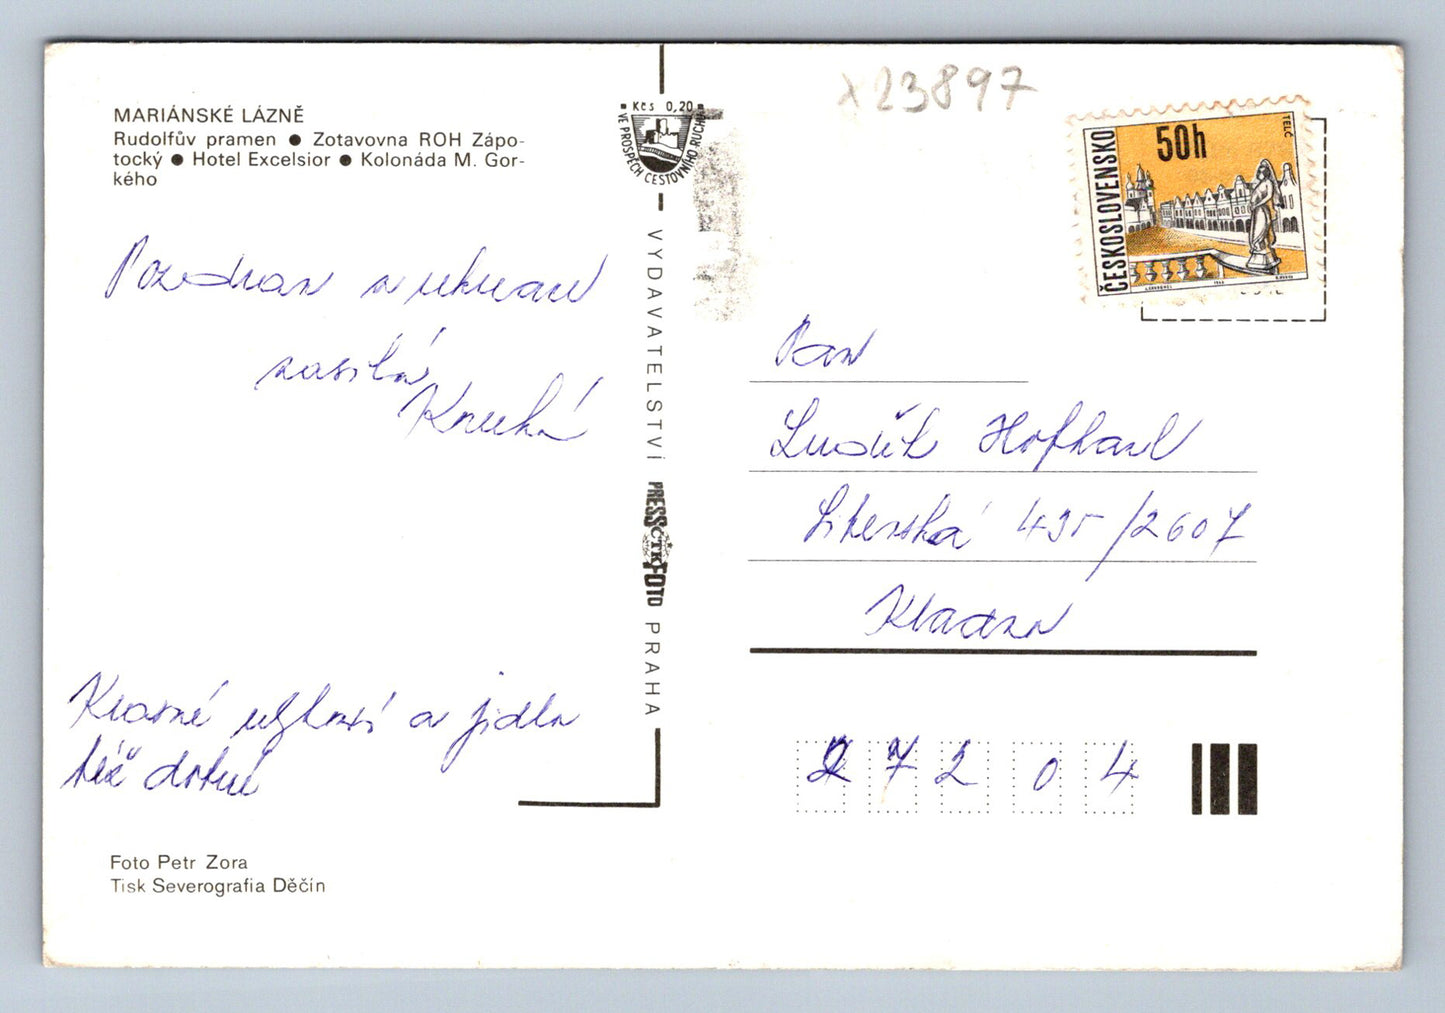 x23897
MARIÁNSKÉ LÁZNĚ
Rudolfův pramen ● Zotavovna ROH Zápo-
tocký ● Hotel Excelsior ● Kolonáda M. Gor-
kého
Kčs 0,20
VE PROSPĚCH CESTOVNÍHO RUCHU
ČESKOSLOVENSKO
50h
TELČ
Pozdrav z rekreace
zasílá
VYDAVATELSTVÍ PRESSFOTO PRAHA
ČTK
Pan
Luděk
435/2607
Kladno
Krásné a jídlo
též dobré
27204
Foto Petr Zora
Tisk Severografia Děčín